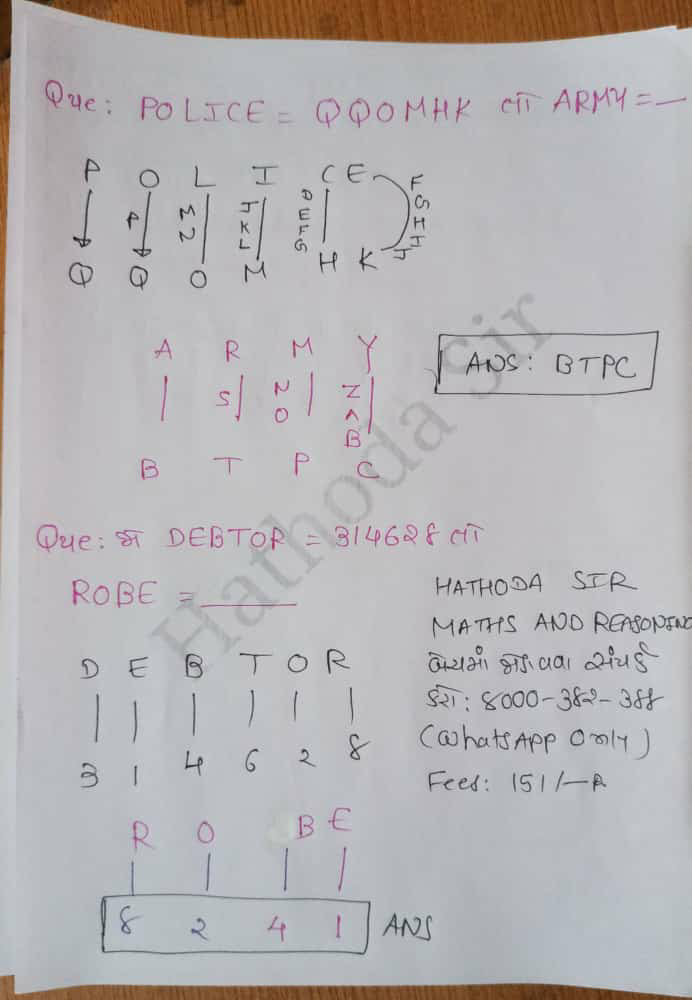 Que: POLICE = QQOMHK તો ARMY = __
P O L I C E
P M N J K L D E F G F G H I J
Q Q O M H K
A R M Y
S N O Z A B
B T P C
ANS: BTPC
Que: જો DEBTOR = 314628 તો
ROBE = ____
D E B T O R
3 1 4 6 2 8
R O B E
8 2 4 1 ANS
HATHODA SIR
MATHS AND REASONING
બેચમાં જોડાવા સંપર્ક
કરો: 8000-382-388
(WhatsApp Only)
Fees: 151/-R
Hathoda Sir